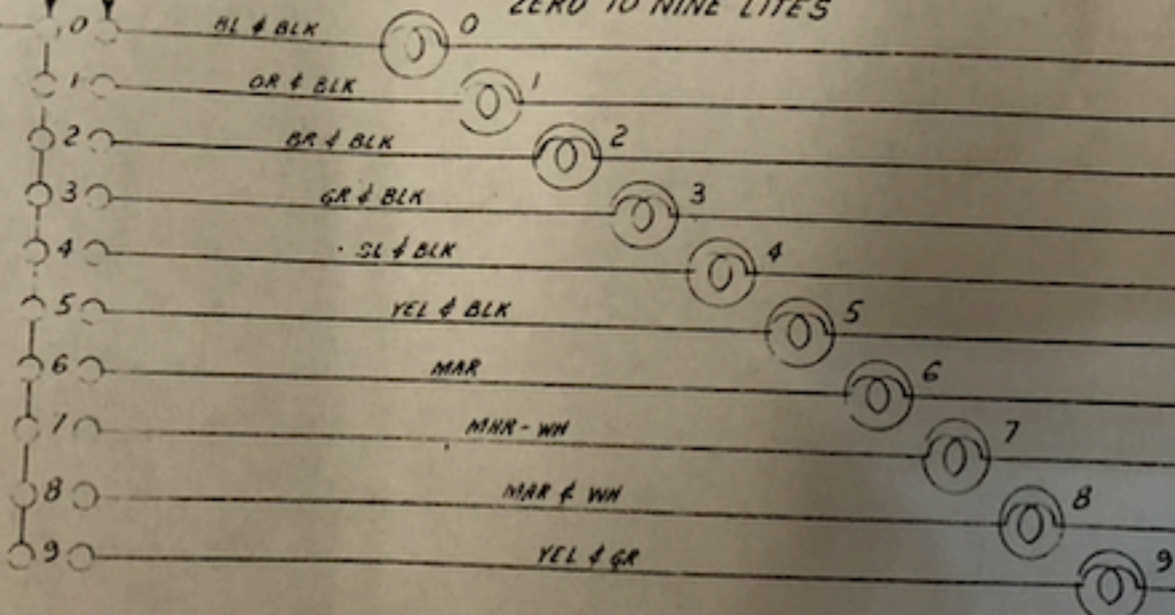 ZERO TO NINE LITES
0 BL & BLK 0
1 OR & BLK 1
2 BR & BLK 2
3 GR & BLK 3
4 SL & BLK 4
5 YEL & BLK 5
6 MAR 6
7 MAR-WH 7
8 MAR & WH 8
9 YEL & GR 9